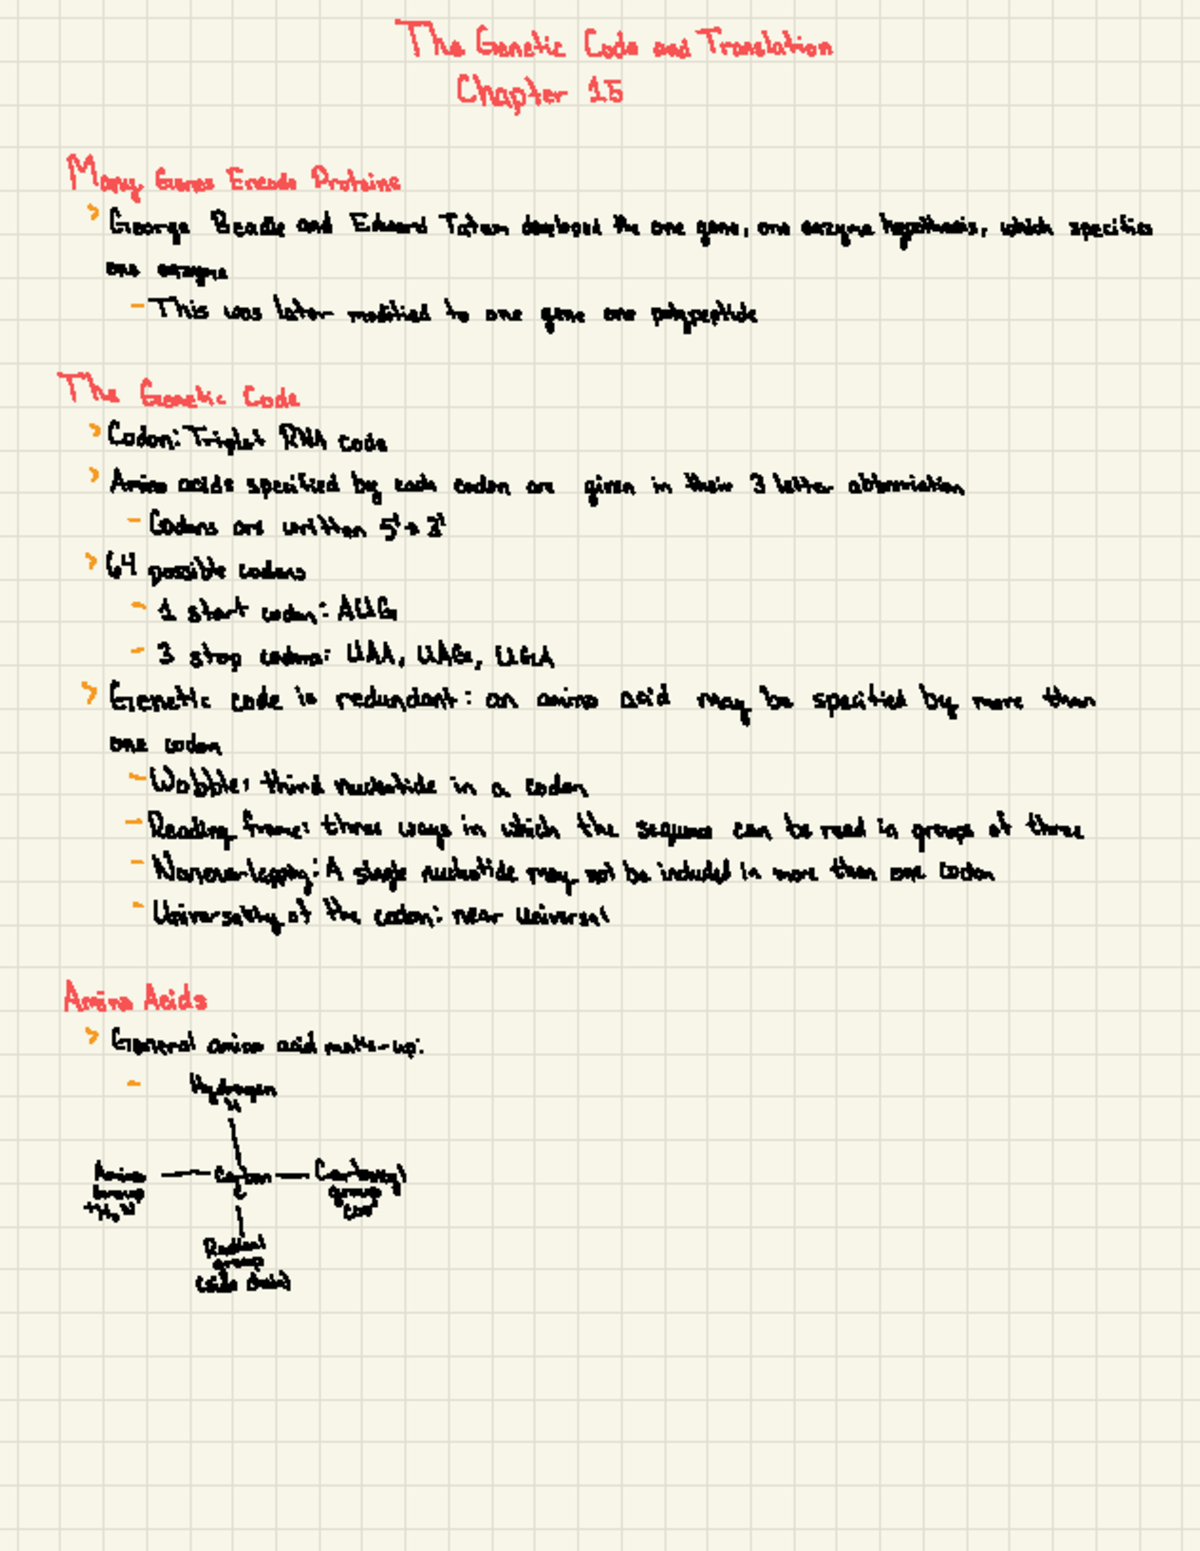 The Genetic Code and Translation
Chapter 15
Many Genes Encode Proteins
> George Beadle and Edward Tatum developed the one gene, one enzyme hypothesis, which specifies
one enzyme
- This was later modified to one gene one polypeptide
The Genetic Code
> Codon: Triplet RNA code
> Amino acids specified by each codon are given in their 3 letter abbreviation
- Codons are written 5' → 3'
> 64 possible codons
- 1 start codon: AUG
- 3 stop codons: UAA, UAG, UGA
> Genetic code is redundant: an amino acid may be specified by more than
one codon
- Wobble: third nucleotide in a codon
- Reading frame: three ways in which the sequence can be read in groups of three
- Nonoverlapping: A single nucleotide may not be included in more than one codon
- Universality of the codon: near universal
Amino Acids
> General amino acid make-up:
- Hydrogen
H
Amino — Carbon — Carboxyl
group C group
+H₃N COO⁻
Radical
group
(side chain)